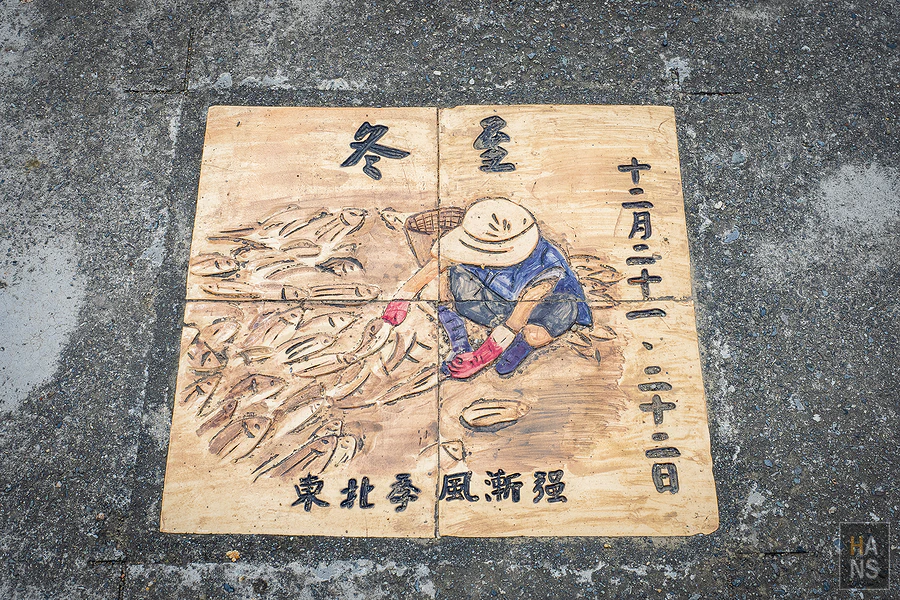 冬至
十二月二十一.二十二日
東北季風漸强
HANS